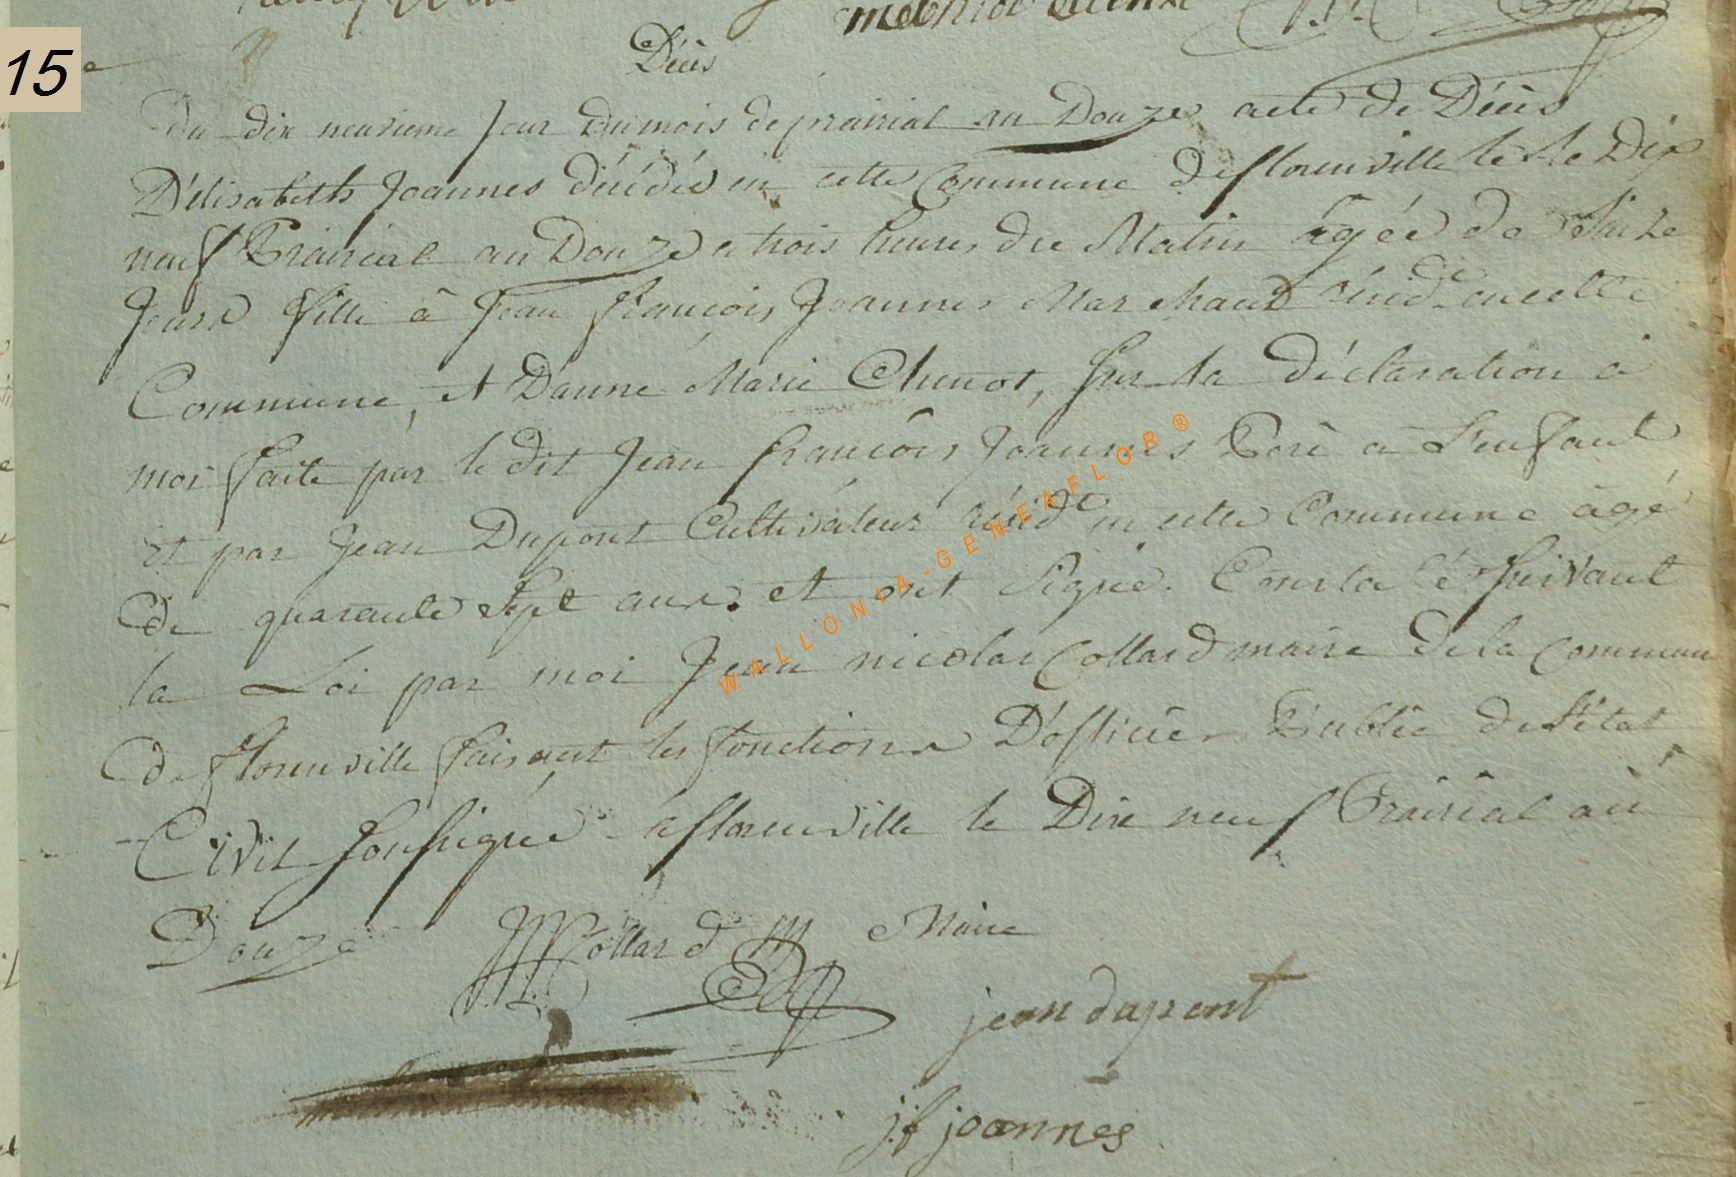 15
Décès
Du dix neuvieme jour du mois de prairial an Douze acte de Décès
D'élisabeth Joannes décédée en cette Commune de florenville le le Dix
neuf Prairial an Douze a trois heures du Matin âgée de Seize
Jours fille à Jean françois Joannes Marchand résidt en cette
Commune, et D'anne Marie Chenot, sur la déclaration à
moi faite par le dit Jean françois Joannes Pere à L'enfant
et par Jean Dupont Cultivateur résidt en cette Commune âgé
De quarante Sept ans. et ont Signé. Constaté Suivant
la Loi par moi Jean nicolas Collard maire de la Commune
de florenville faisant les fonctions D'officier Public de l'état
Civil Soussigné à florenville le Dix neuf Prairial an
Douze JN Collard Maire
jean dupont
jf joannes
WALLONIA-GENEAFLOR®